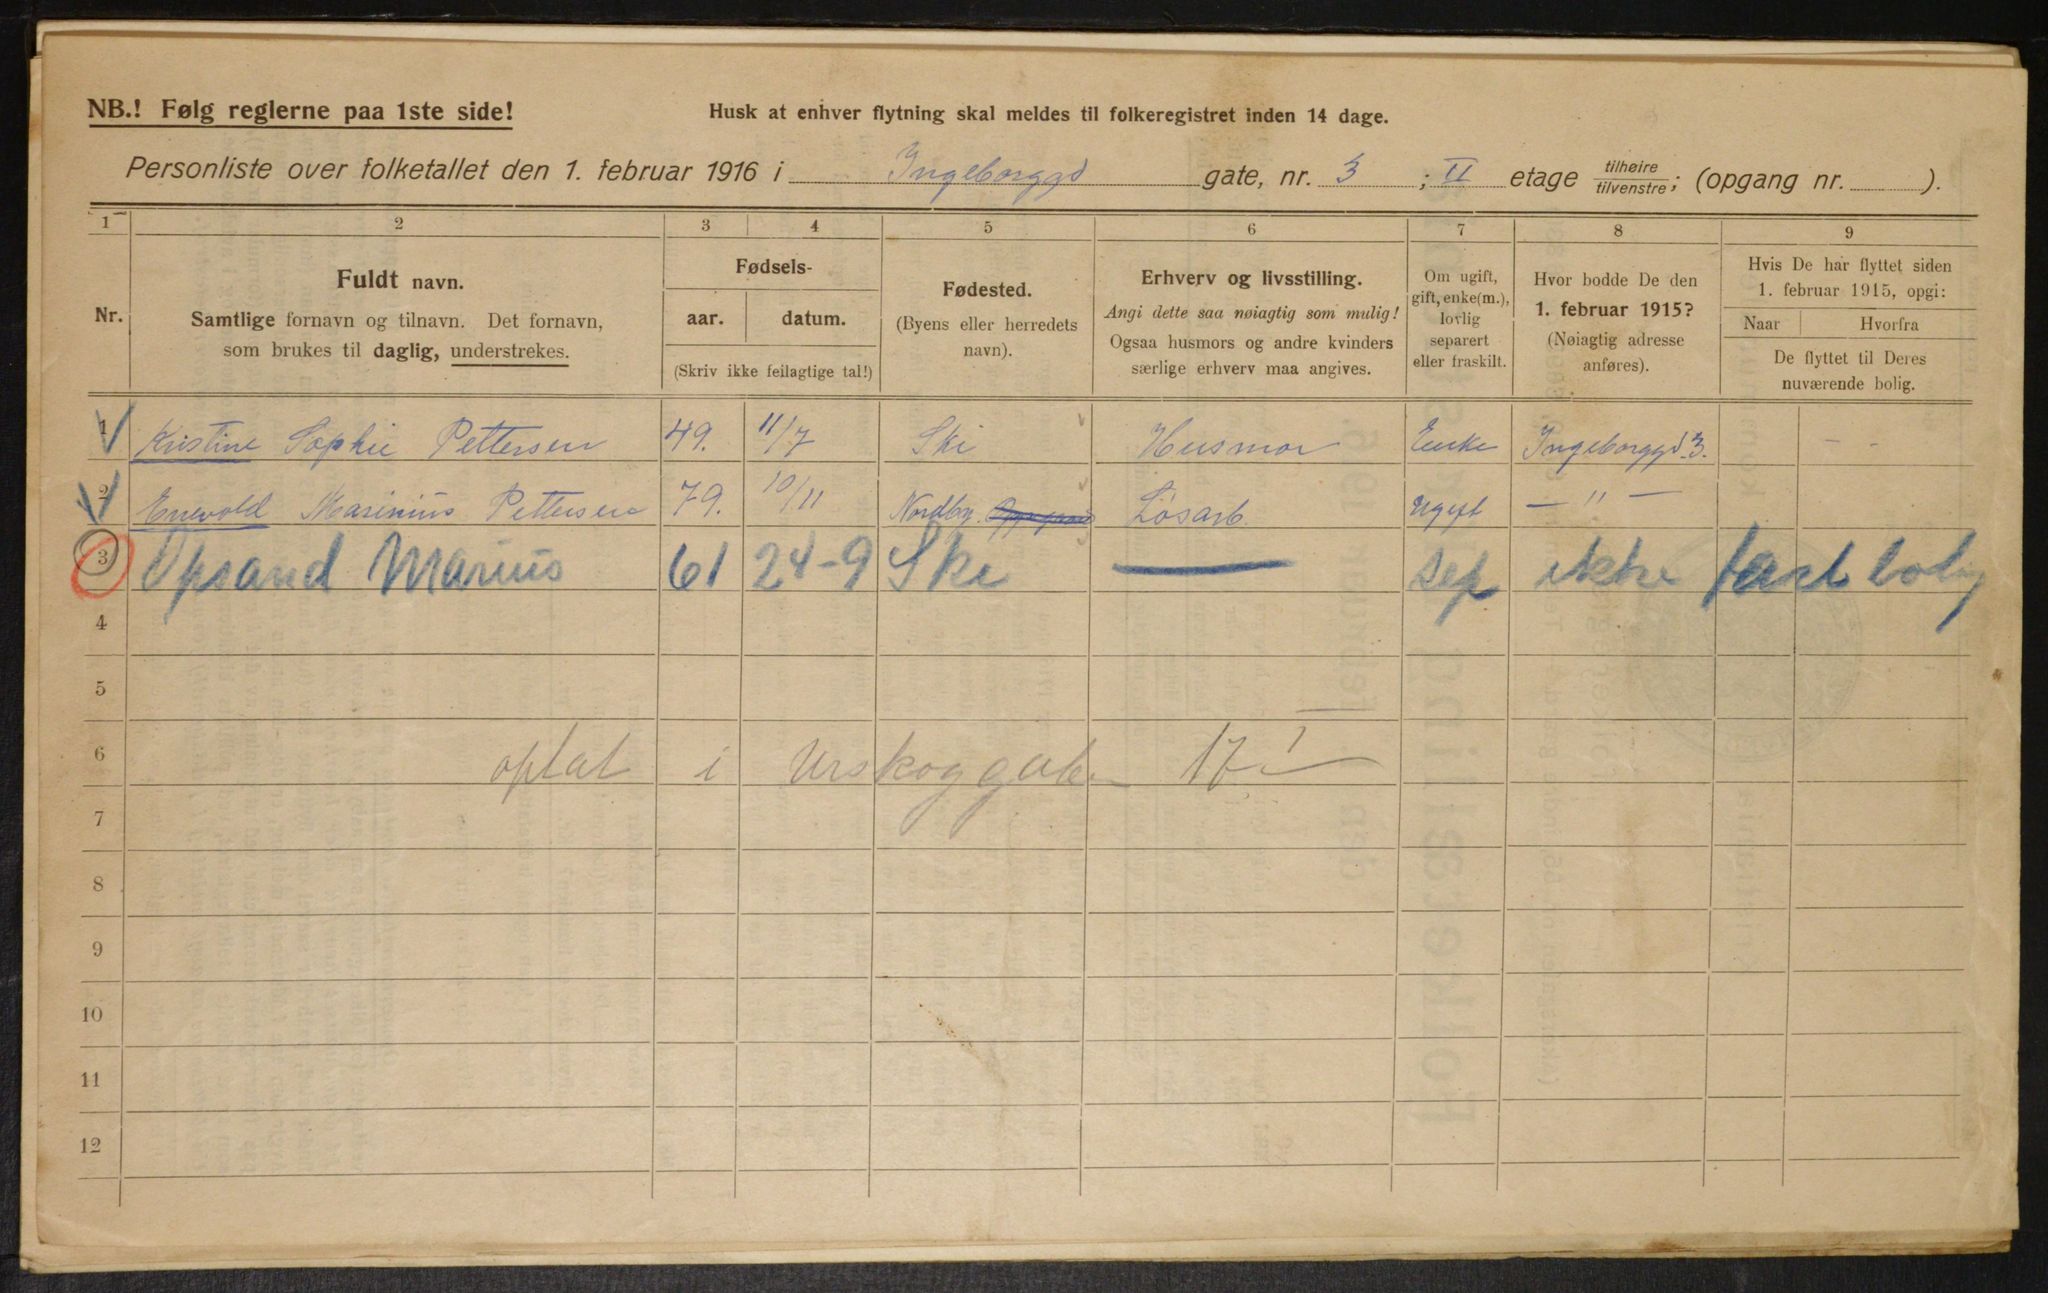 NB.! Følg reglerne paa 1ste side!
Husk at enhver flytning skal meldes til folkeregistret inden 14 dage.
Personliste over folketallet den 1. februar 1916 i Ingeborggd gate, nr. 3 ; II etage tilhøire/tilvenstre; (opgang nr. ).
1 2 3 4 5 6 7 8 9
Nr.
Fuldt navn.
Samtlige fornavn og tilnavn. Det fornavn,
som brukes til daglig, understrekes.
Fødsels-
aar. datum.
(Skriv ikke feilagtige tal!)
Fødested.
(Byens eller herredets
navn).
Erhverv og livsstilling.
Angi dette saa nøiagtig som mulig!
Ogsaa husmors og andre kvinders
særlige erhverv maa angives.
Om ugift,
gift, enke(m.),
lovlig
separert
eller fraskilt.
Hvor bodde De den
1. februar 1915?
(Nøiagtig adresse
anføres).
Hvis De har flyttet siden
1. februar 1915, opgi:
Naar Hvorfra
De flyttet til Deres
nuværende bolig.
1 Kristine Sophie Pettersen 49. 11/7 Ski Husmor Enke Ingeborggd. 3. - -
2 Enevold Marinius Pettersen 79. 10/11 Nordby Løsarb. Ugift — " —
3 Opsand Marius 61 24-9 Ski — sep ikke fast bolig
4
5
6 optat i Urskoggaten 17 I
7
8
9
10
11
12